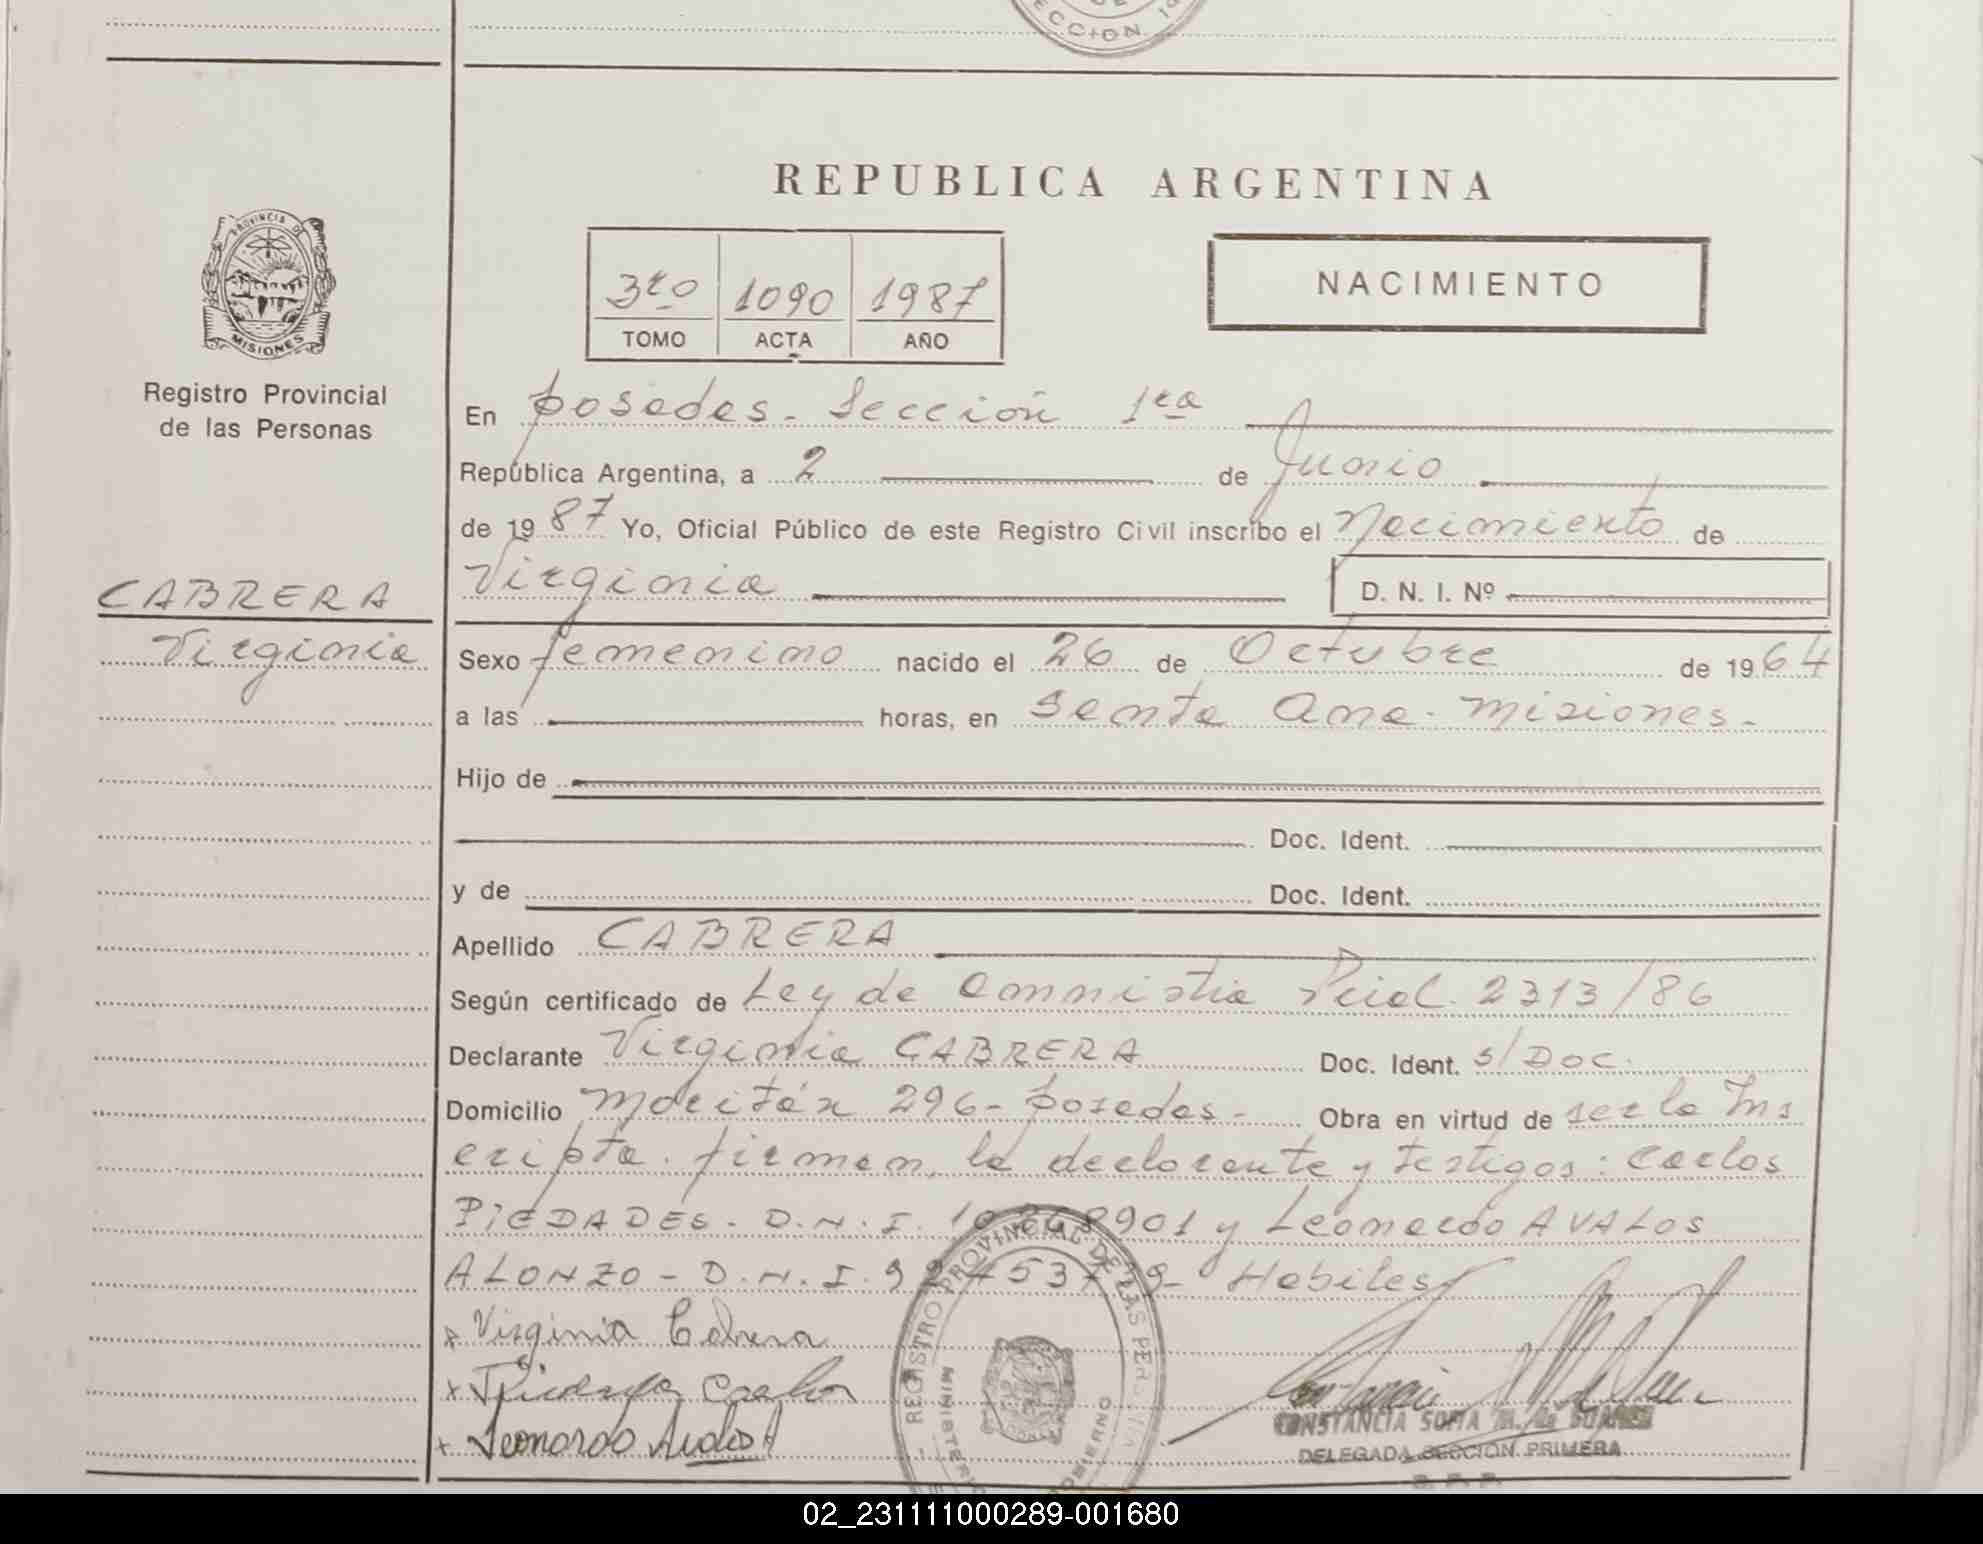 ECCION 1
REPUBLICA ARGENTINA
PROVINCIA DE
MISIONES
Registro Provincial
de las Personas
3ro 1090 1987
TOMO ACTA AÑO
NACIMIENTO
En posadas - Sección 1ra
República Argentina, a 2 de Junio
de 1987 Yo, Oficial Público de este Registro Civil inscribo el Nacimiento de
Virginia D. N. I. Nº
CABRERA
Virginia
Sexo femenino nacido el 26 de Octubre de 1964
a las horas, en Santa Ana - Misiones -
Hijo de
Doc. Ident.
y de Doc. Ident.
Apellido CABRERA
Según certificado de Ley de amnistia Pcial. 2313/86
Declarante Virginia CABRERA Doc. Ident. s/Doc.
Domicilio 296 - posadas - Obra en virtud de ser la Ins
cripta. firman, la declarante y testigos: Carlos
PIEDADES - D.N.I. 8901 y Leonardo AVALOS
ALONZO - D.N.I. Habiles
x Virginia Cabrera
x Carlos
x Leonardo
REGISTRO PROVINCIAL DE LAS PERSONAS
MINISTERIO GOBIERNO
CONSTANCIA SOFIA M. de
DELEGADA SECCION PRIMERA
02_231111000289-001680